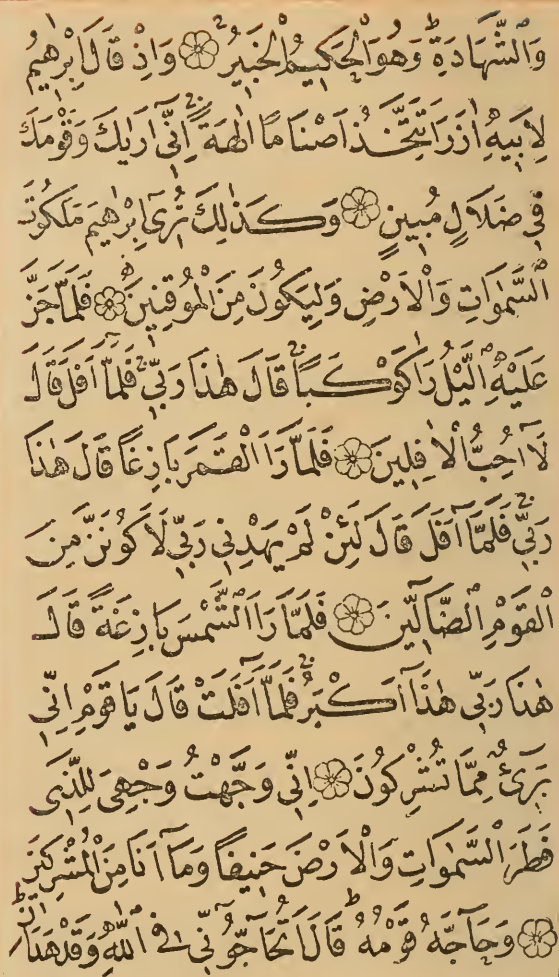 وَالشَّهَادَةِ وَهُوَ الْحَكِيمُ الْخَبِيرُ ۝ وَاِذْ قَالَ اِبْرٰهِيمُ
لِاَبِيهِ اٰزَرَ اَتَتَّخِذُ اَصْنَامًا اٰلِهَةً اِنِّٓي اَرٰيكَ وَقَوْمَكَ
فِي ضَلَالٍ مُبِينٍ ۝ وَكَذٰلِكَ نُرِٓي اِبْرٰهِيمَ مَلَكُوتَ
السَّمٰوَاتِ وَالْاَرْضِ وَلِيَكُونَ مِنَ الْمُوقِنِينَ ۝ فَلَمَّا جَنَّ
عَلَيْهِ الَّيْلُ رَاٰ كَوْكَبًا قَالَ هٰذَا رَبِّي فَلَمَّٓا اَفَلَ قَالَ
لَٓا اُحِبُّ الْاٰفِلِينَ ۝ فَلَمَّا رَاَ الْقَمَرَ بَازِغًا قَالَ هٰذَا
رَبِّي فَلَمَّٓا اَفَلَ قَالَ لَئِنْ لَمْ يَهْدِنِي رَبِّي لَاَكُونَنَّ مِنَ
الْقَوْمِ الضَّٓالِّينَ ۝ فَلَمَّا رَاَ الشَّمْسَ بَازِغَةً قَالَ
هٰذَا رَبِّي هٰذَٓا اَكْبَرُ فَلَمَّٓا اَفَلَتْ قَالَ يَا قَوْمِ اِنِّي
بَرِٓئٌ مِمَّا تُشْرِكُونَ ۝ اِنِّي وَجَّهْتُ وَجْهِيَ لِلَّذِي
فَطَرَ السَّمٰوَاتِ وَالْاَرْضَ حَنِيفًا وَمَٓا اَنَا مِنَ الْمُشْرِكِينَ
۝ وَحَٓاجَّهُ قَوْمُهُ قَالَ اَتُحَٓاجُّٓونِّي فِي اللّٰهِ وَقَدْ هَدٰانِ